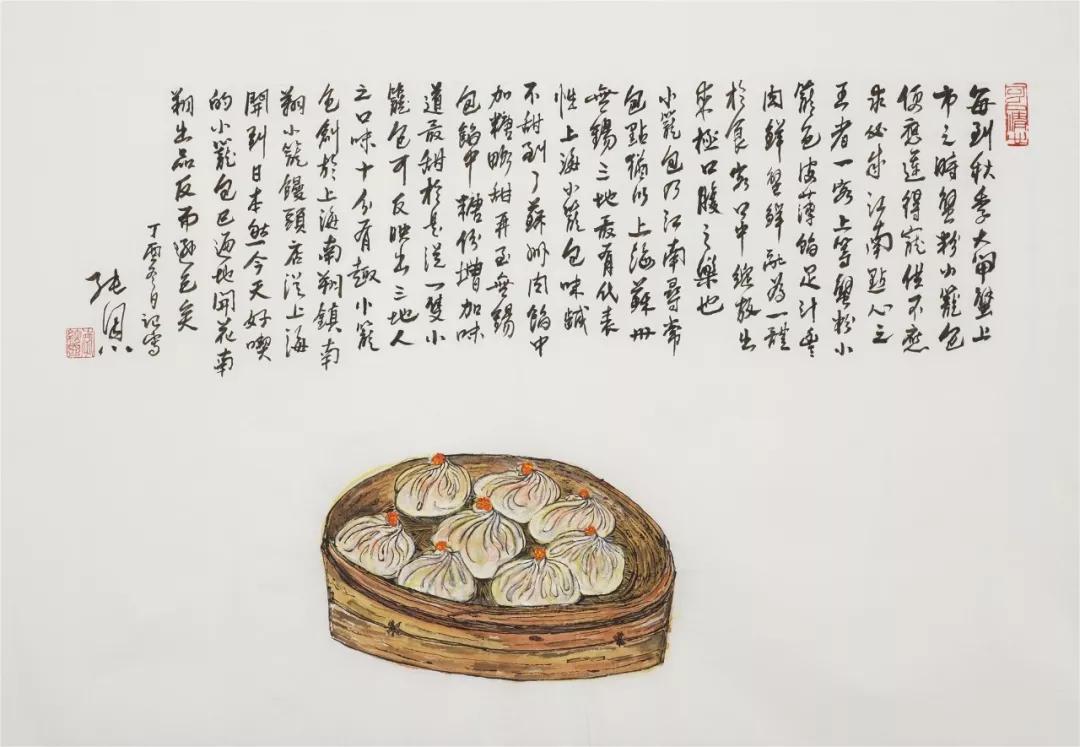 每到秋季大閘蟹上
市之時蟹粉小籠包
便應運得寵供不應
求必成江南點心之
王者一客上等蟹粉小
籠包皮薄餡足汁豐
肉鮮蟹鮮融為一體
於食客口中綻放出
來極口腹之樂也
小籠包乃江南尋常
包點猶以上海蘇州
無錫三地最有代表
性上海小籠包味鹹
不甜到了蘇州肉餡中
加糖略甜再至無錫
包餡中糖份增加味
道最甜於是從一隻小
籠包可反映出三地人
之口味十分有趣小籠
包創於上海南翔鎮南
翔小籠饅頭店從上海
開到日本然今天好喫
的小籠包已遍地開花南
翔出品反而遜色矣
丁酉冬日記寫